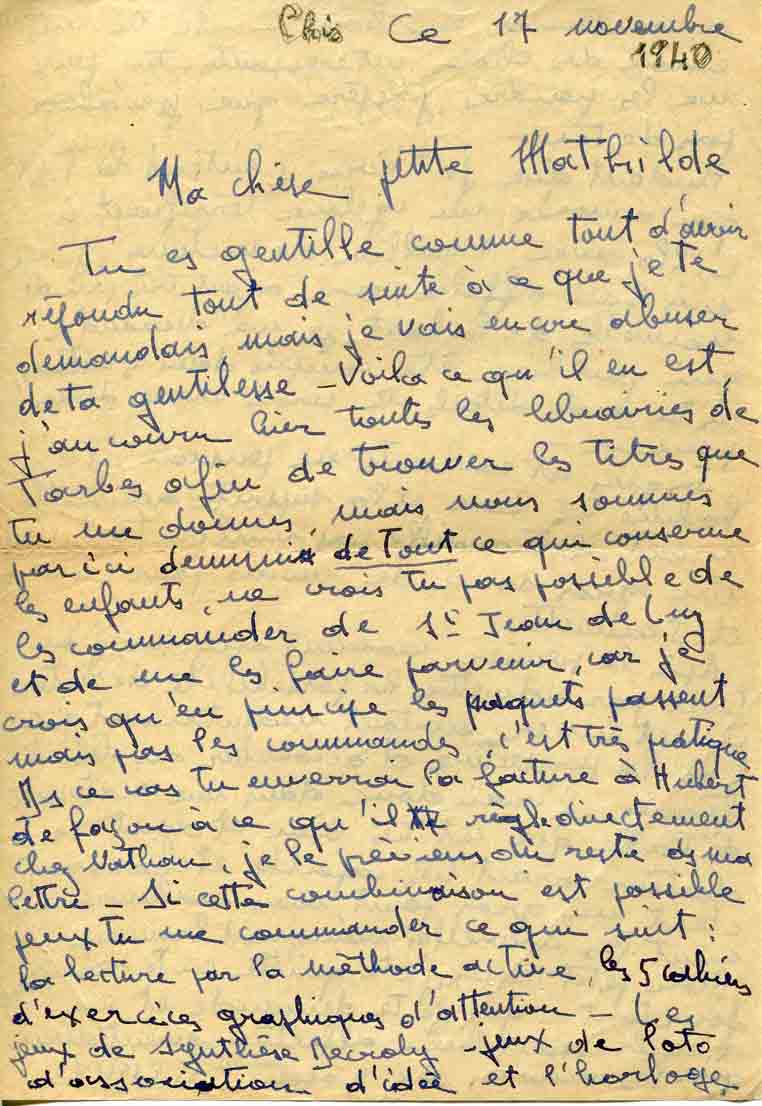 Ce 17 novembre
1940
Ma chère petite Mathilde
Tu es gentille comme tout d'avoir
répondu tout de suite à ce que je te
demandais, mais je vais encore abuser
de ta gentilesse – Voila ce qu'il en est,
j'au couru hier toutes les librairies de
Tarbes afin de trouver les titres que
tu me donnes, mais nous sommes
par ici demunis de Tout ce qui conserne
les enfants, ne crois tu pas possible de
les commander de St Jean de Luz
et de me les faire parvenir, car je
crois qu'en principe les paquets passent
mais pas les commandes, c'est très pratique
Ds ce cas tu enverrai la facture à Hubert
de façon à ce qu'il règle directement
chez Nathan, je le préviens du reste ds ma
lettre – Si cette combinaison est possible
peux tu me commander ce qui suit :
la lecture par la méthode active, les 5 cahiers
d'exercices graphiques d'attention – Les
jeux de Synthèse Decroly – jeux de loto
d'association d'idée et l'horloge,